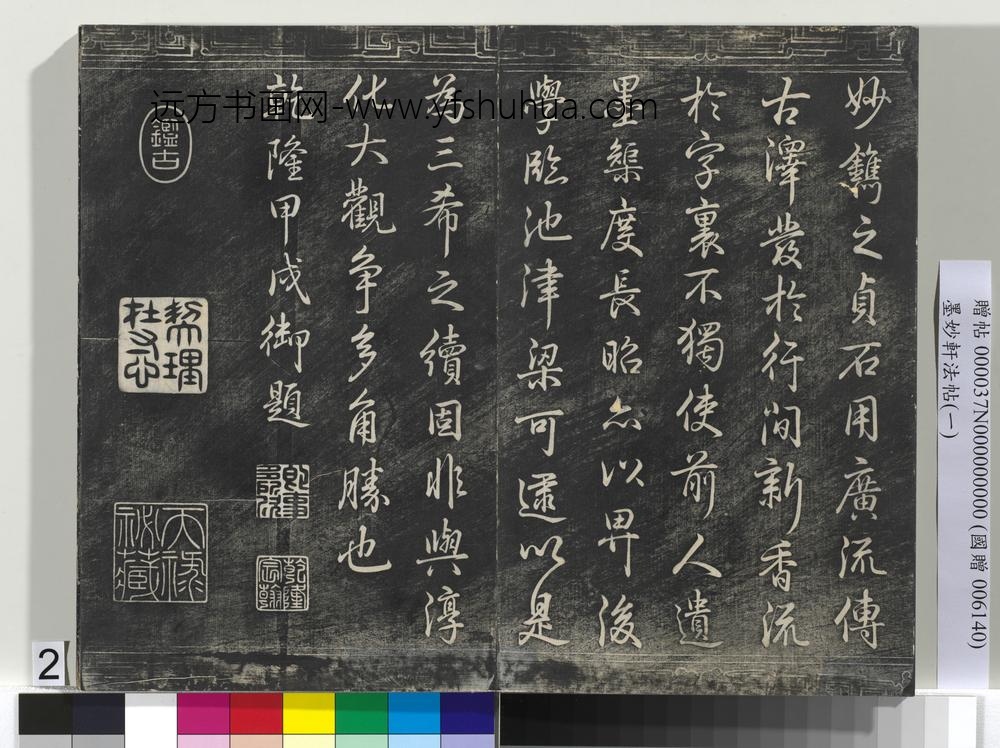 妙鐫之貞石用廣流傳
古澤發於行間新香流
於字裏不獨使前人遺
墨榘度長昭亦以畀後
學臨池津梁可逮以是
為三希之續固非與淳
化大觀爭多角勝也
乾隆甲戌御題
乾隆宸翰
鑑古
契理
杜多心
天祿
秘藏
远方书画网-www.yfshuhua.com
贈帖 000037N000000000 (國贈 006140)
墨妙軒法帖(一)
2